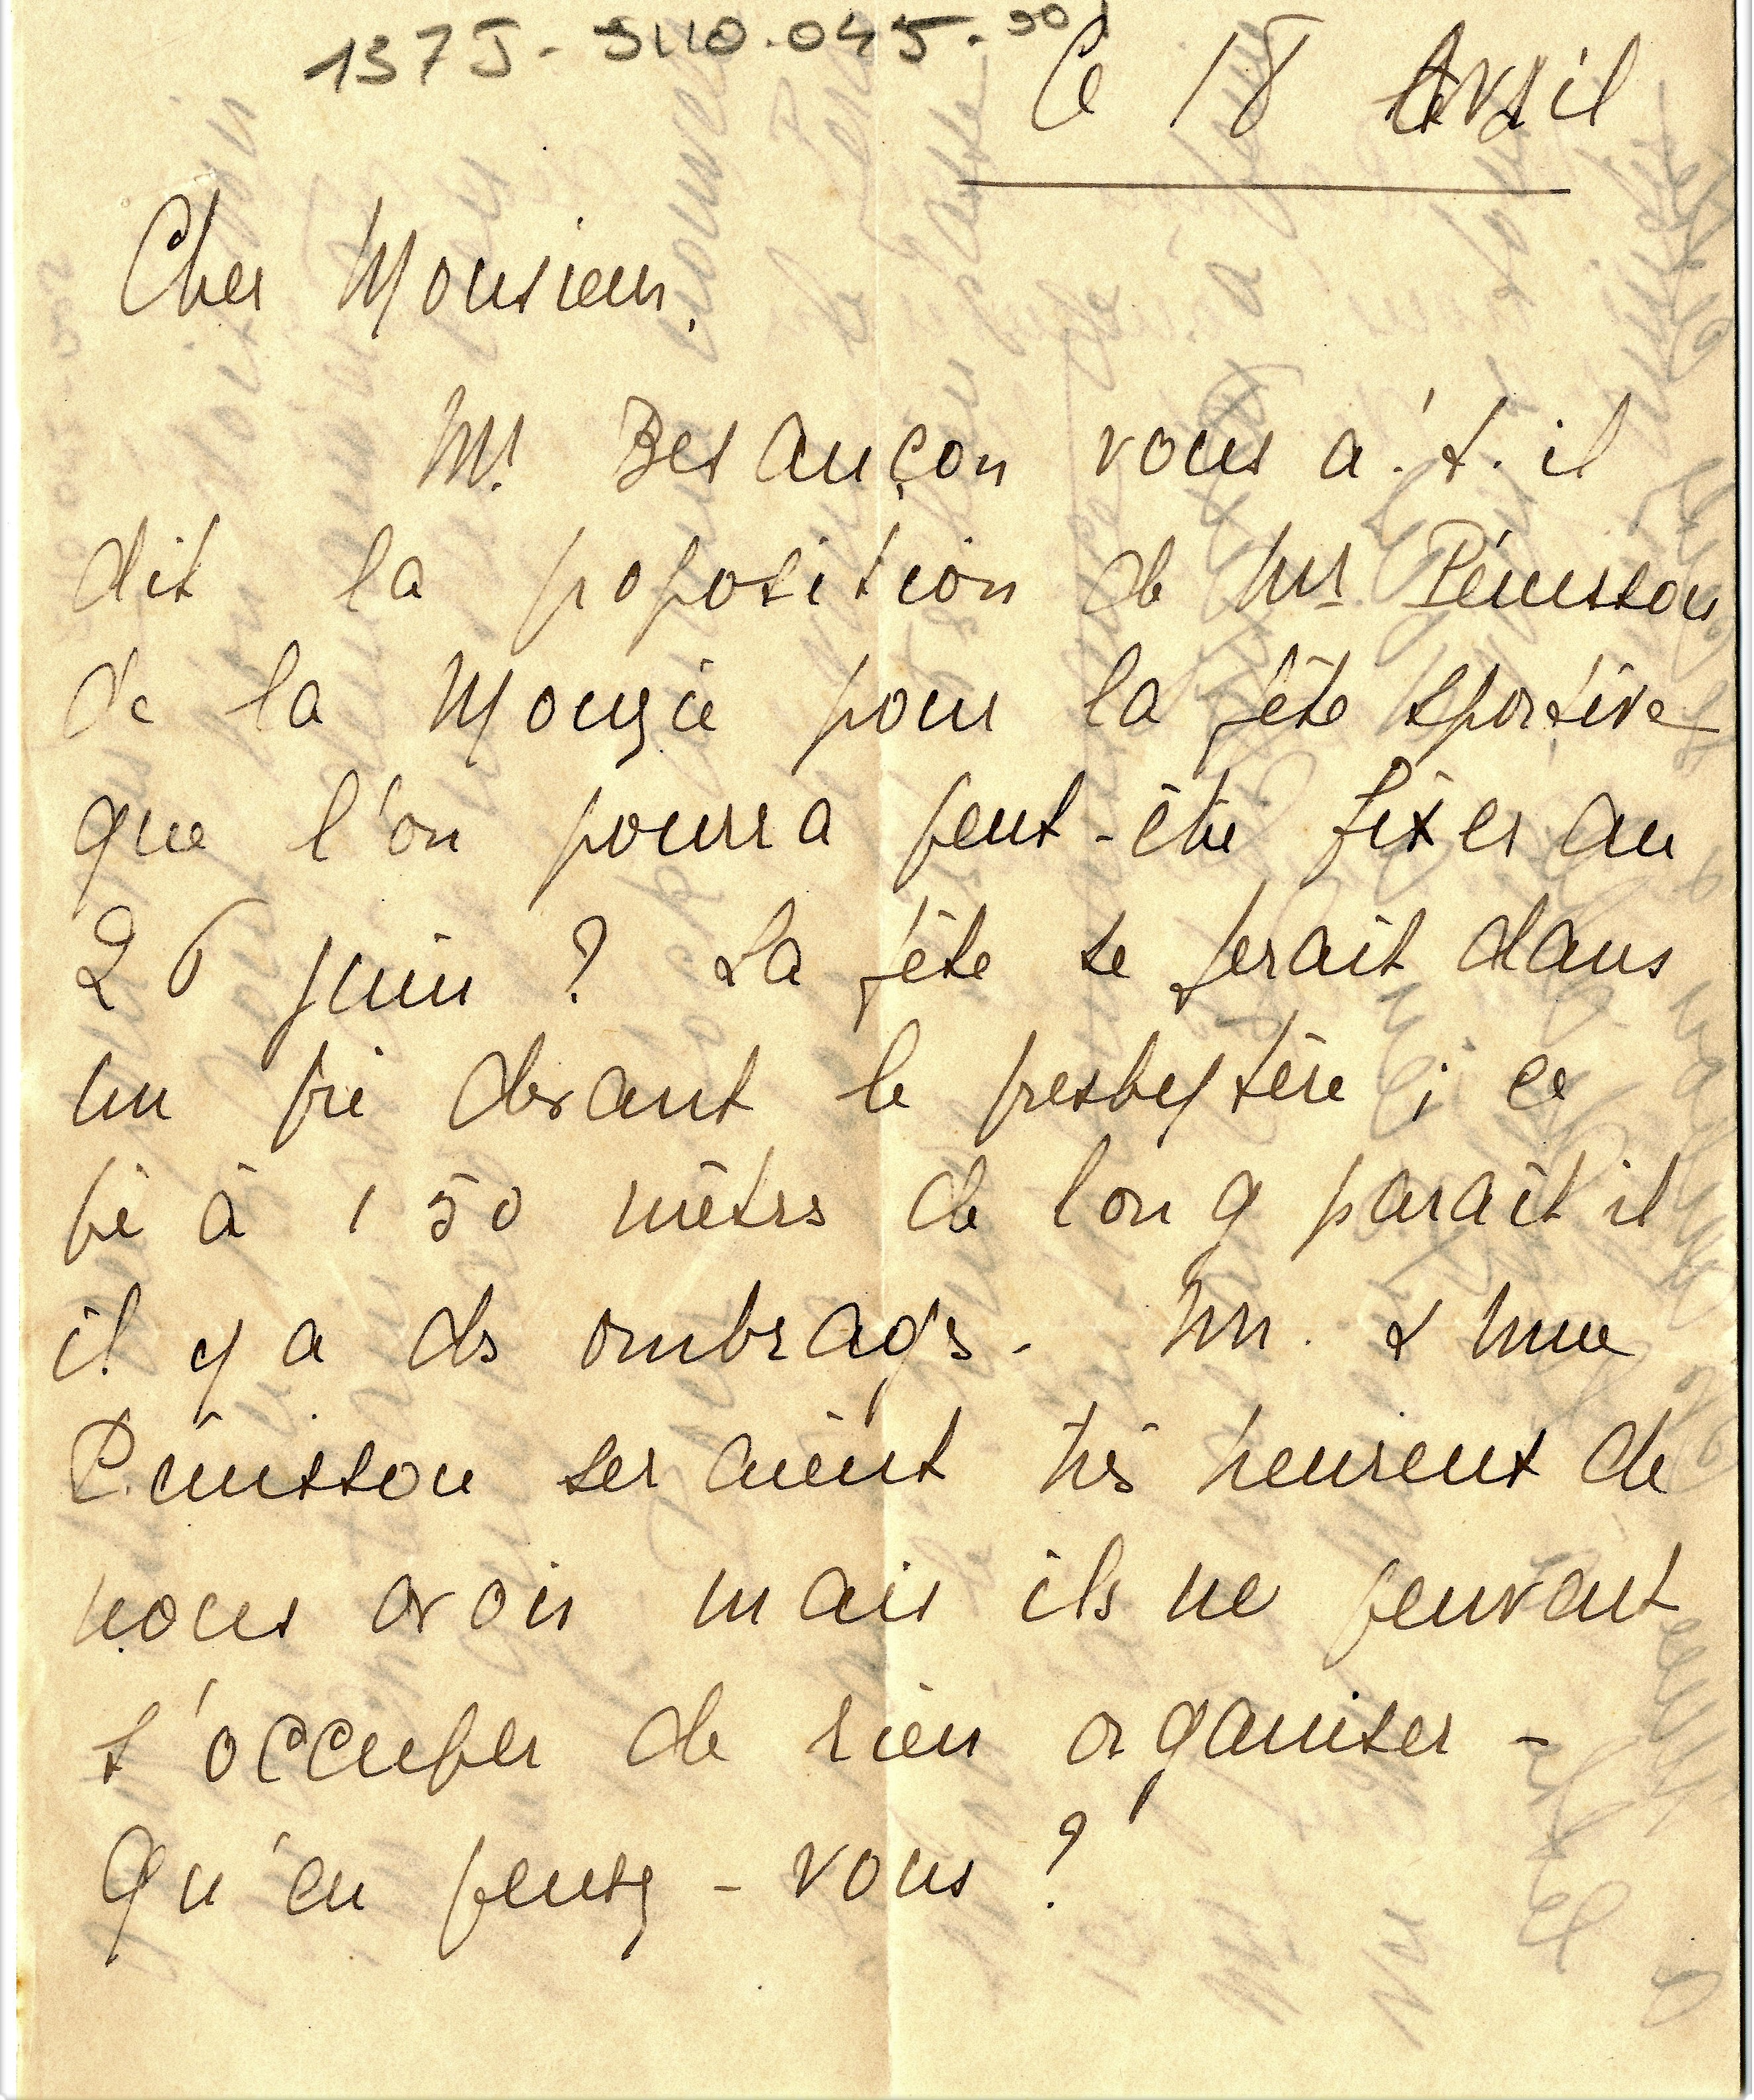 137 J - 3110.045.
Ce 18 Avril
Cher Monsieur.
Mr. Besançon vous a-t-il
dit la poposition de Mr Pénisson
de la Mougie pour la fête sportive
que l'on pourra peut-être fixer au
26 juin ? La fête se ferait dans
un pré devant le presbytère ; ce
pré à 150 mètres de long parait il
il y a des ombrages - Mr. & Mme
Pénisson seraient très heureux de
nous avoir mais ils ne peuvent
s'occuper de rien organiser -
Qu'en pensez - vous ?